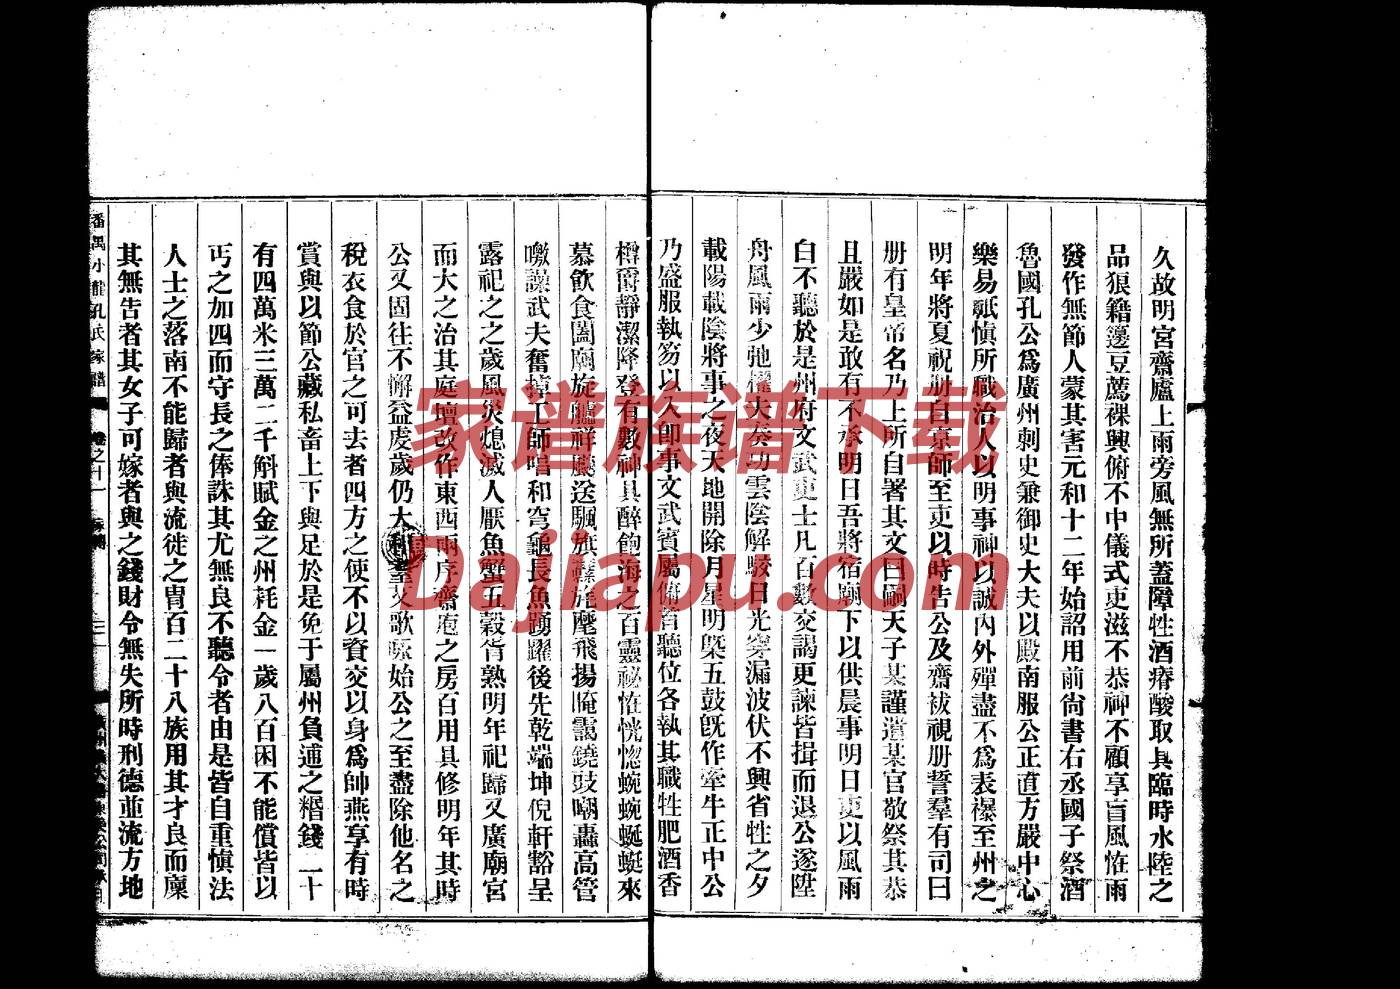 久故明宮齋廬上雨旁風無所蓋障牲酒瘠酸取具臨時水陸之
品狼籍籩豆薦裸興俯不中儀式吏滋不恭神不顧享盲風怪雨
發作無節人蒙其害元和十二年始詔用前尙書右丞國子祭酒
魯國孔公爲廣州刺史兼御史大夫以殿南服公正直方嚴中心
樂易祗愼所職治人以明事神以誠內外殫盡不爲表襮至州之
明年將夏祝册自京師至吏以時告公及齋祓視册誓羣有司曰
册有皇帝名乃上所自署其文曰嗣天子某謹遣某官敬祭其恭
且嚴如是敢有不承明日吾將宿廟下以供晨事明日吏以風雨
白不聽於是州府文武吏士凡百數交謁更諫皆揖而退公遂陞
舟風雨少弛櫂夫奏功雲陰解駮日光穿漏波伏不興省牲之夕
載陽載陰將事之夜天地開除月星明槩五鼓旣作牽牛正中公
乃盛服執笏以入卽事文武賓屬俯首聽位各執其職牲肥酒香
樽爵靜潔降登有數神具醉飽海之百靈祕怪恍惚蜿蜿蜒蜒來
慕飮食闔廟旋艫祥飈送颿旗纛旄麾飛揚晻靄鐃豉嘲轟高管
噭譟武夫奮棹工師唱和穹龜長魚踴躍後先乾端坤倪軒豁呈
露祀之之歲風災熄滅人厭魚蟹五穀胥熟明年祀歸又廣廟宮
而大之治其庭壇改作東西兩序齋庖之房百用具修明年其時
公又固往不懈益虔歲仍大和耋艾歌咏始公之至盡除他名之
稅衣食於官之可去者四方之使不以資交以身爲帥燕享有時
賞與以節公藏私畜上下與足於是免于屬州負逋之緡錢二十
有四萬米三萬二千斛賦金之州耗金一歲八百困不能償皆以
丐之加四而守長之俸誅其尤無良不聽令者由是皆自重愼法
人士之落南不能歸者與流徙之胄百二十八族用其才良而廩
其無告者其女子可嫁者與之錢財令無失所時刑德並流方地
番禺小龍孔氏家譜 卷之十一 家傳
家谱族谱下载
Dajiapu.com